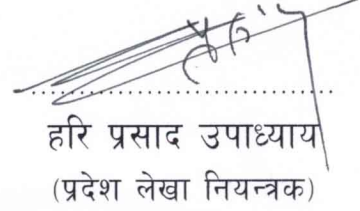 हरि प्रसाद उपाध्याय
(प्रदेश लेखा नियन्त्रक)